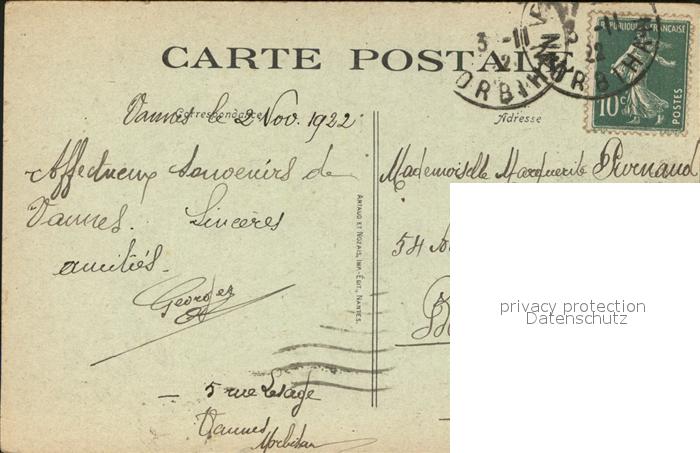 CARTE POSTALE
Correspondance
Adresse
RÉPUBLIQUE FRANÇAISE
10c
POSTES
3 -11
22
MORBIHAN
Vannes le 2 Nov. 1922
Affectueux Souvenirs de
Vannes. Sincères
amitiés.
Georges
5 rue Lesage
Vannes
Morbihan
ARTAUD ET NOZAIS, IMP.-ÉDIT., NANTES.
Mademoiselle Marguerite
54
privacy protection
Datenschutz